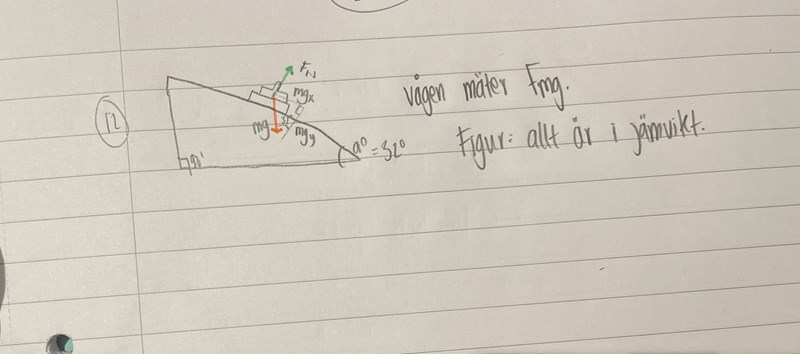 12
F_N
mgx
mg
mgy
a° = 32°
vågen mäter Fmg.
Figur: allt är i jämvikt.